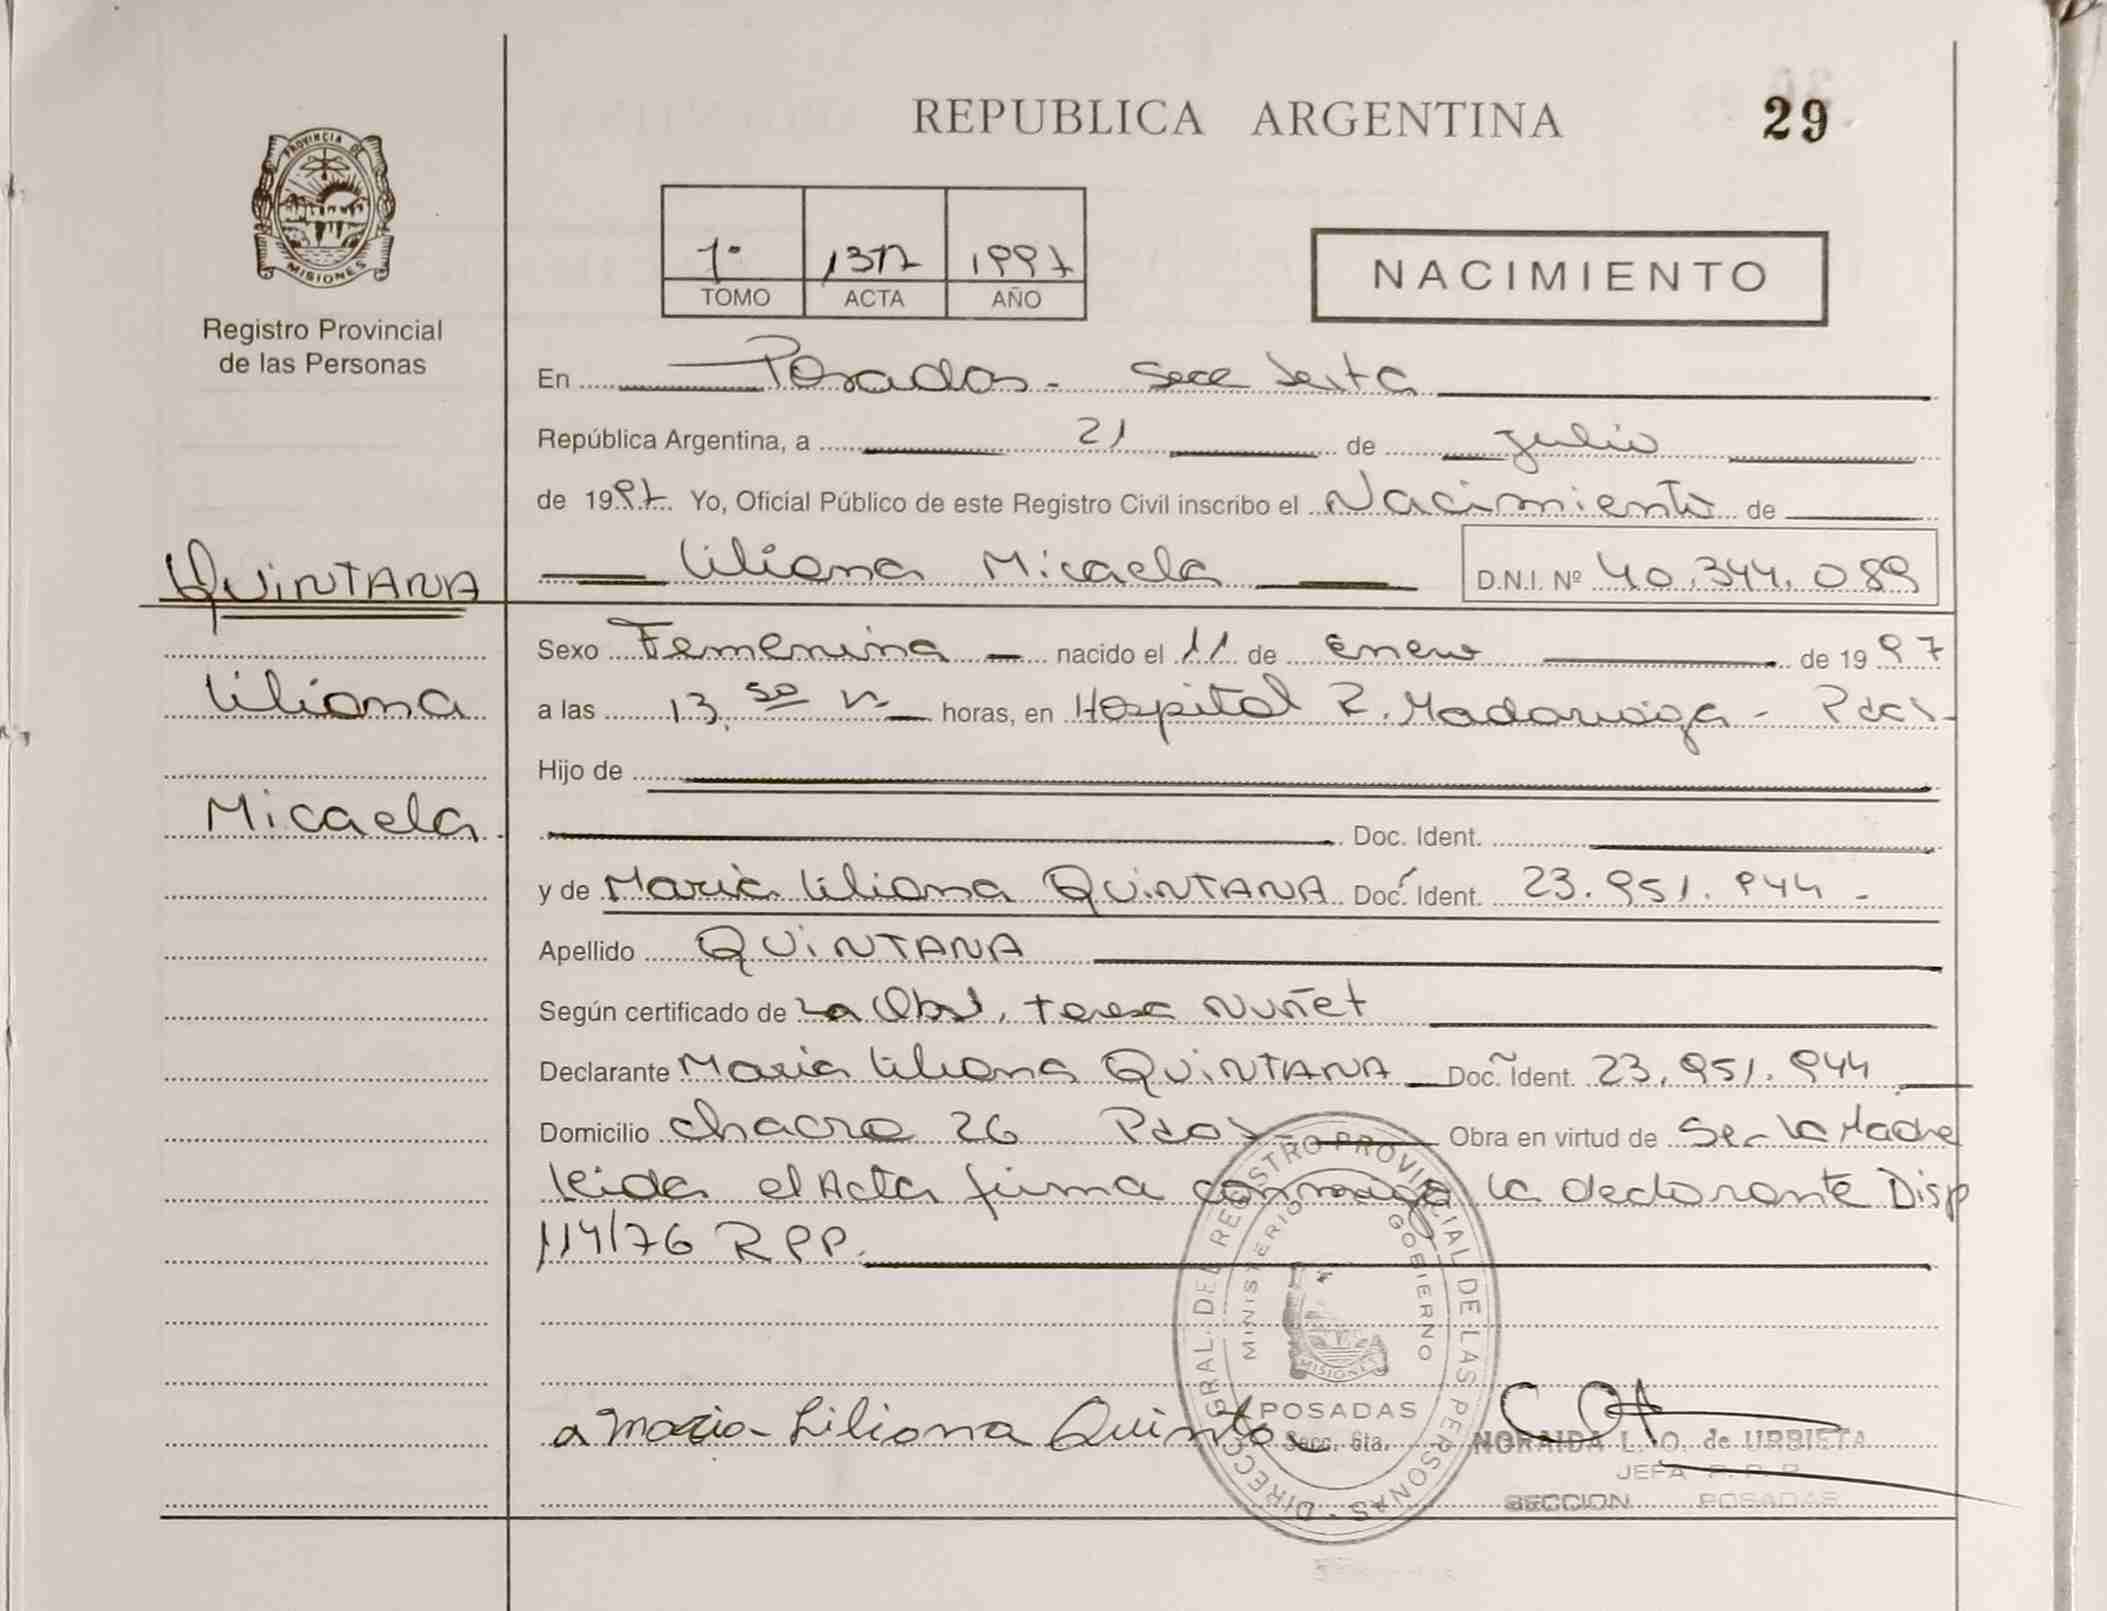 REPUBLICA ARGENTINA 29
PROVINCIA DE
MISIONES
Registro Provincial
de las Personas
1º
TOMO ACTA AÑO
1997
NACIMIENTO
En Posadas - Secc Sexta
República Argentina, a 21 de Julio
de 1997 Yo, Oficial Público de este Registro Civil inscribo el Nacimiento de
QUINTANA
Liliana Micaela D.N.I. Nº 40.344.089
Sexo Femenina nacido el 11 de Enero de 1997
Liliana
a las 13.50 horas, en Hospital R. Madariaga - Pdas -
Hijo de
Micaela
Doc. Ident.
y de Maria Liliana QUINTANA Doc. Ident. 23.951.944 -
Apellido QUINTANA
Según certificado de La Obst. Teresa Nuñez
Declarante Maria Liliana QUINTANA Doc. Ident. 23.951.944
Domicilio Chacra 26 Pdas - Obra en virtud de Ser la Madre
leida el Acta firma conmigo la declarante Disp
114/76 RPP.
DIRECC. GRAL. DEL REGISTRO PROVINCIAL DE LAS PERSONAS
MINISTERIO GOBIERNO
MISIONES
POSADAS
Secc. 6ta.
Maria Liliana Quinta
NORAIDA L. O. de URBIETA
JEFA R. P. P.
SECCION POSADAS